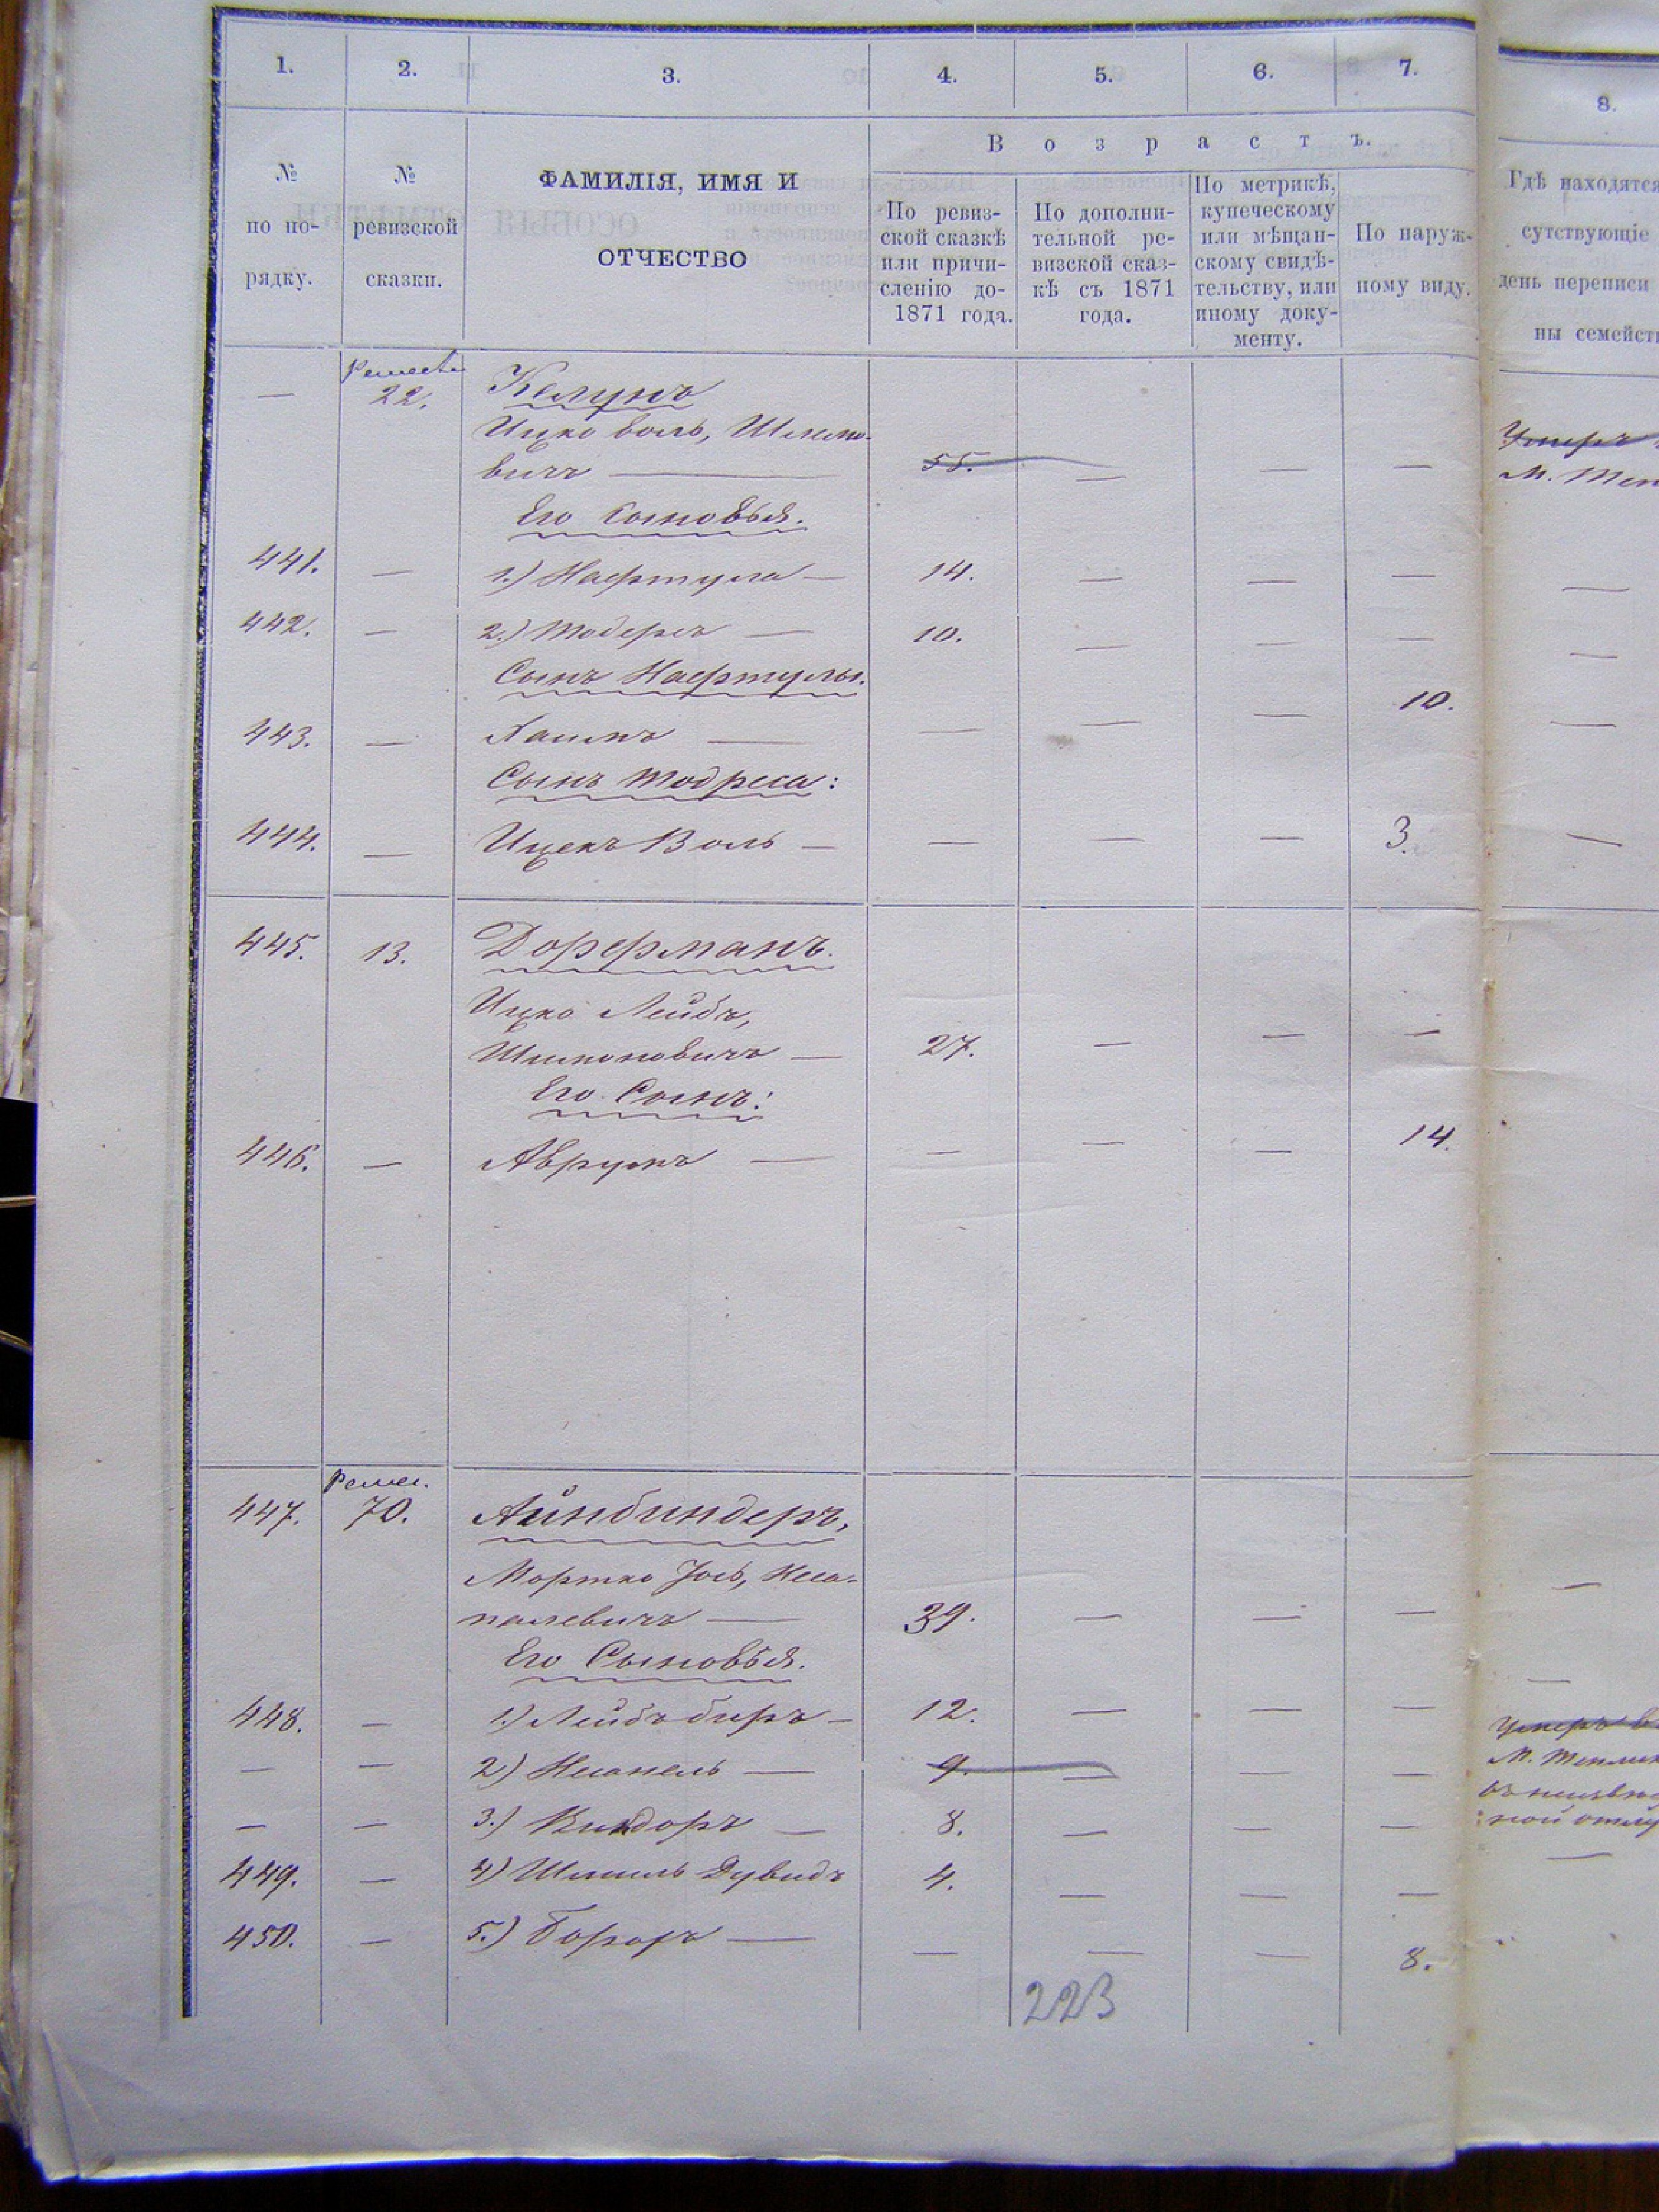 1. 2. 3. 4. 5. 6. 7. 8.
№ по по-рядку.
№ ревизской сказки.
ФАМИЛІЯ, ИМЯ И
ОТЧЕСТВО
Возрастъ.
По ревиз-
ской сказкѣ
или причи-
сленію до-
1871 года.
По дополни-
тельной ре-
визской сказ-
кѣ съ 1871
года.
По метрикѣ,
купеческому
или мѣщан-
скому свидѣ-
тельству, или
иному доку-
менту.
По наруж-
ному виду.
Гдѣ находятся
сутствующіе
день переписи
ны семейст
— 22.
Ицко Воль, Шлемо-
вичъ — 55. — — — Умеръ
М. Теп
Его Сыновья.
441. — 1.) Нафтула — 14. — — — —
442. — 2.) Тодересъ — 10. — — — —
Сынъ Нафтулы.
443. — Хаимъ — — — — 10. —
Сынъ Тодреса:
444. — Ицекъ Воль — — — — 3. —
445. 13. Дорфманъ.
Ицко Лейбъ,
Шимоновичъ — 27. — — —
Его Сынъ:
446. — Аврумъ — — — — 14.
Ремес.
447. 70. Айнбиндеръ,
Мортко Іось, Неса-
налевичъ — 39. — — — —
Его Сыновья.
448. — 1.) Лейбъ беръ — 12. — — — —
— — 2) Несанель — 9. — — — Умеръ в
М. Теплик
— — 3.) — 8. — — — въ неизвѣс
ной отлу
449. — 4) Шмиль Дувидъ 4. — — — —
450. — 5.) Борохъ — — — — 8.
223